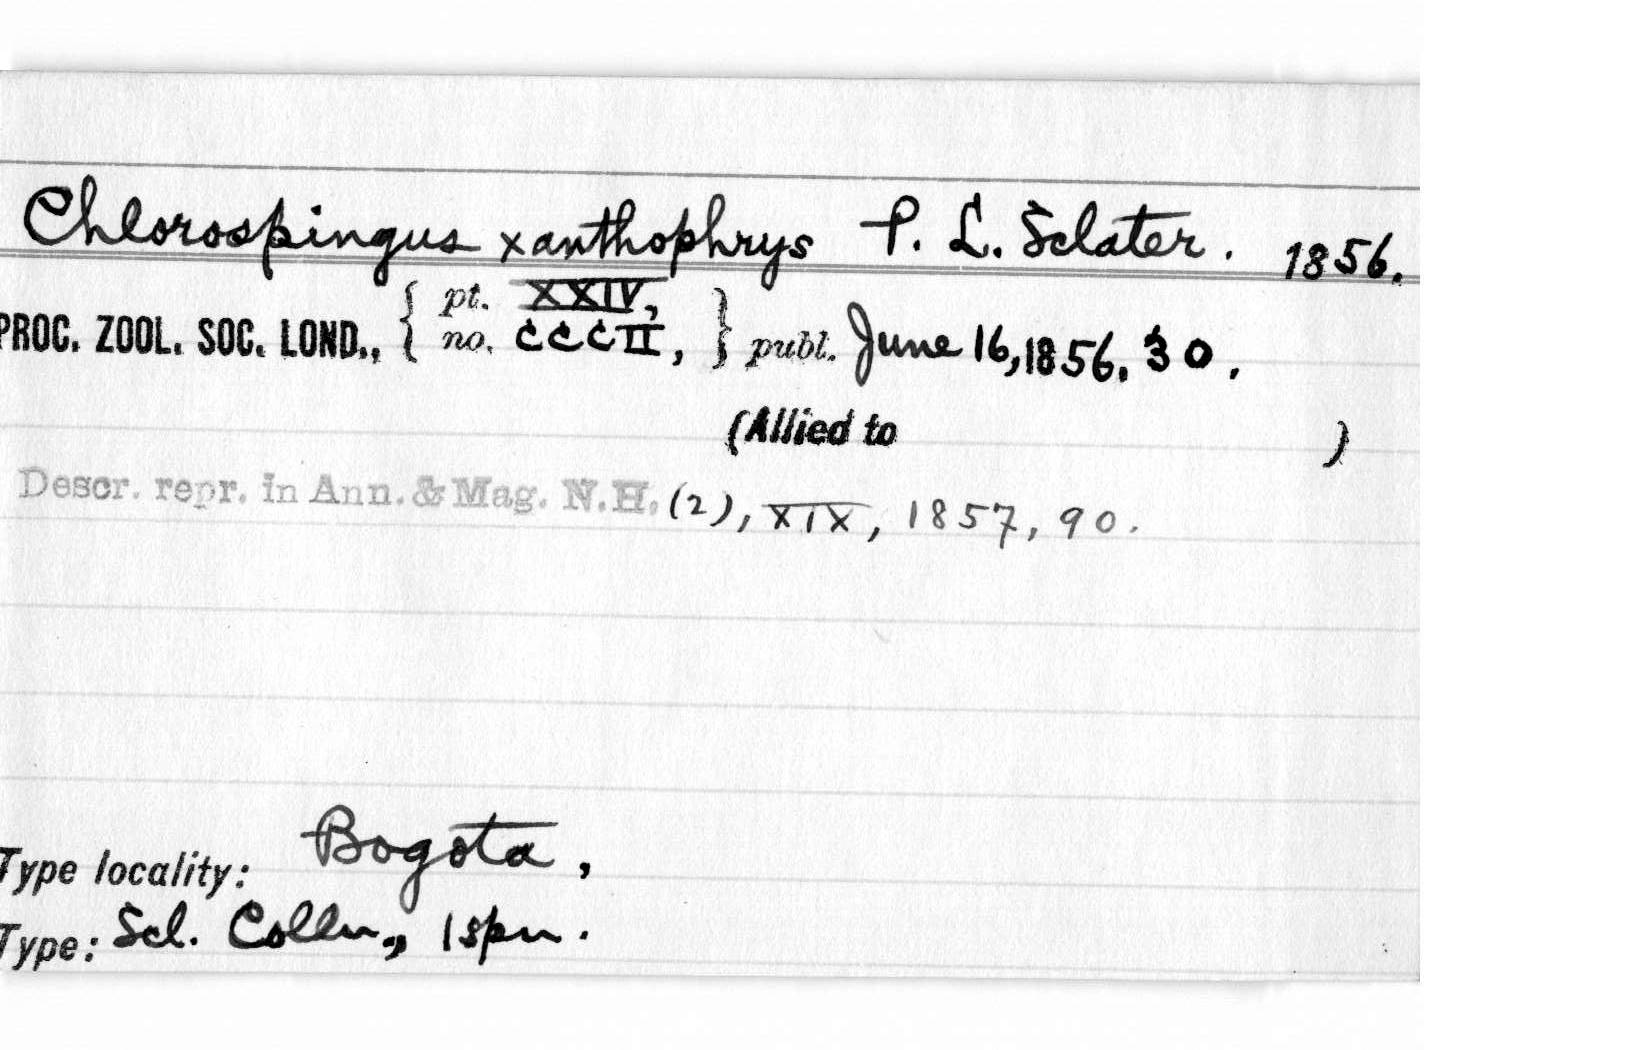 Chlorospingus xanthophrys P. L. Sclater. 1856.
PROC. ZOOL. SOC. LOND., { pt. XXIV, no. CCCII, } publ. June 16, 1856. 30.
(Allied to )
Descr. repr. in Ann. & Mag. N.H. (2), XIX, 1857, 90.
Type locality: Bogota,
Type: Scl. Colln., 1 spn.